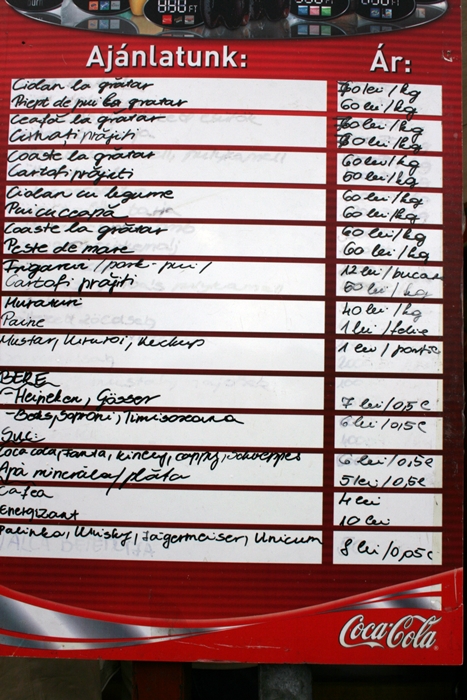 Ajánlatunk: Ár:
Ciolan la grătar 70 lei/kg
Piept de pui la gratar 60 lei/kg
Ceafă la grătar 70 lei/kg
Cârnați prăjiți 60 lei/kg
Coaste la grătar 60 lei/kg
Cartofi prăjiți 60 lei/kg
Ciolan cu legume 60 lei/kg
Pui cu ceapă 60 lei/kg
Coaste la grătar 60 lei/kg
Peste de mare 60 lei/kg
Frigarui /pork-pui/ 12 lei/bucata
Cartofi prăjiți 60 lei/kg
Muraturi 40 lei/kg
Paine 1 lei/felie
Mustar, Ketchup 1 lei/portie
BERE
-Heineken, Gösser 7 lei/0,5l
-Beks, Soproni, Timisoreana 6 lei/0,5l
Suc:
Coca cola, Fanta, Kinley, cappy, Schweppes 6 lei/0,5l
Apă minerala/plata 5 lei/0,5l
Cafea 4 lei
Energizant 10 lei
Palinka, Whisky, Jägermeiser, Unicum 8 lei/0,05l
Coca-Cola